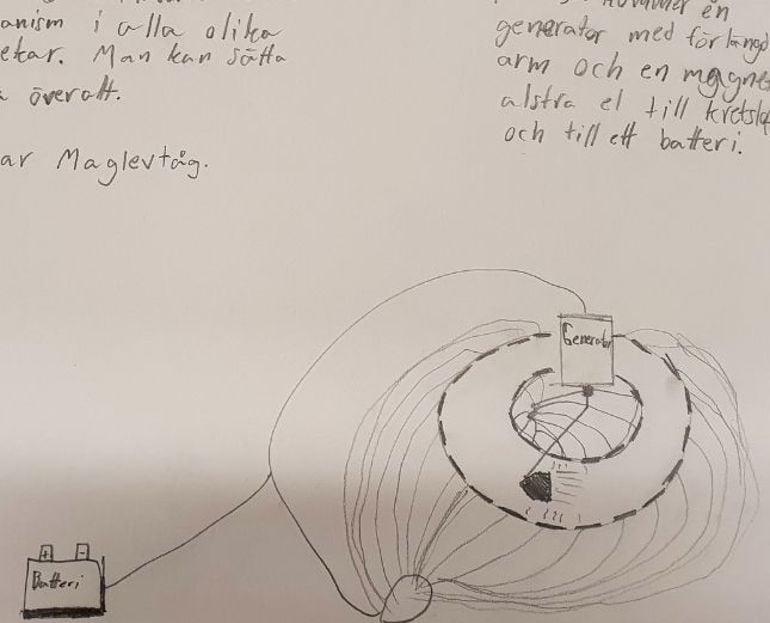 anism i alla olika
ekar. Man kan sätta
överallt.
ar Maglevtåg.
en
generator med förlängd
arm och en magnet
alstra el till kretslo
och till ett batteri.
Generator
+ -
Batteri